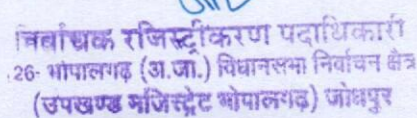 निर्वाचक रजिस्ट्रीकरण पदाधिकारी
26- भोपालगढ़ (अ.जा.) विधानसभा निर्वाचन क्षेत्र
(उपखण्ड मजिस्ट्रेट भोपालगढ़) जोधपुर